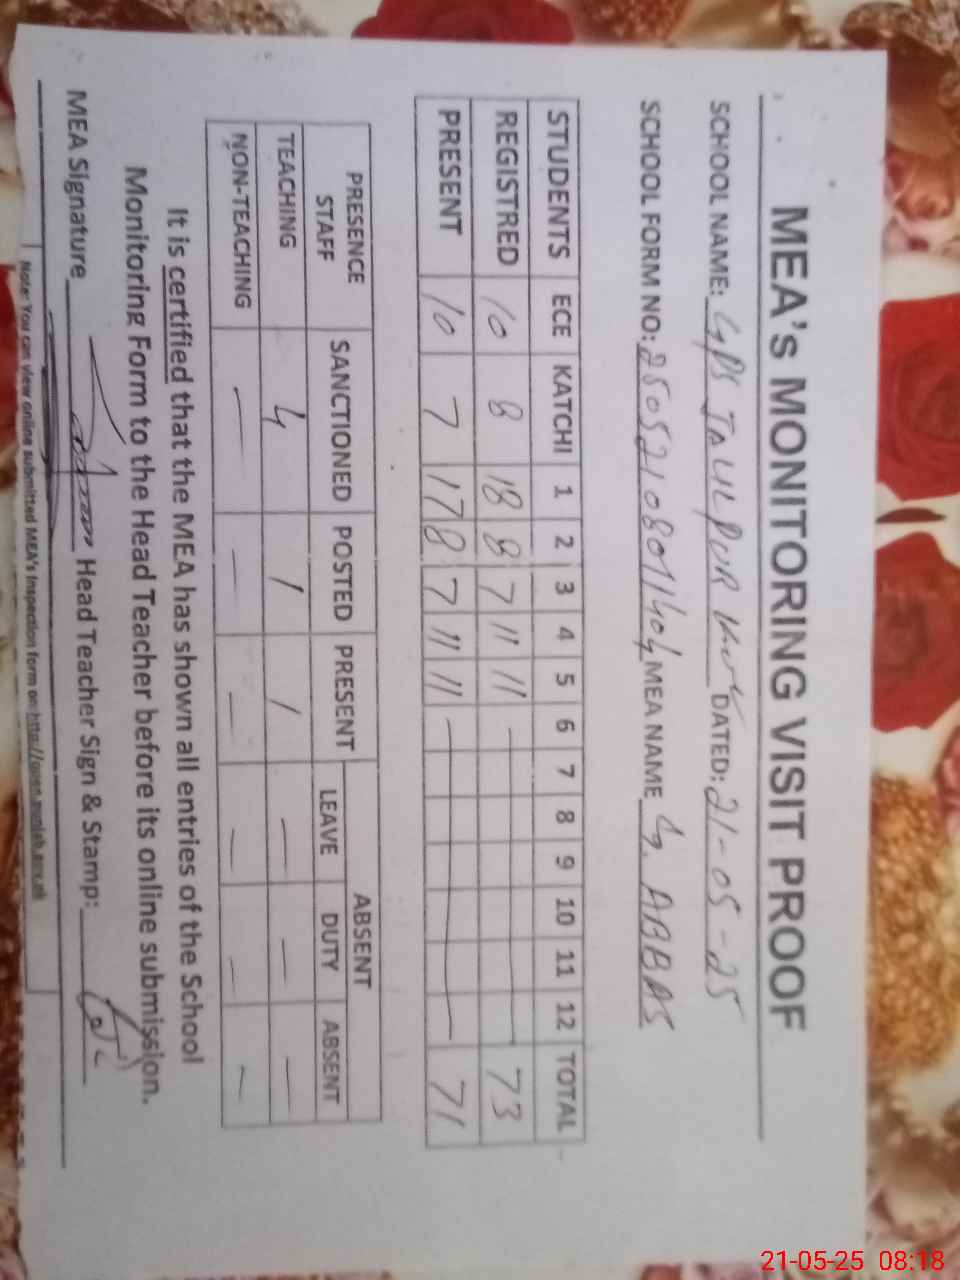 MEA's MONITORING VISIT PROOF
SCHOOL NAME: GPS TALILPUR DATED: 21-05-25
SCHOOL FORM NO: 25052108011404 MEA NAME G. ABBAS
STUDENTS ECE KATCHI 1 2 3 4 5 6 7 8 9 10 11 12 TOTAL
REGISTRED 10 8 18 8 7 11 11 — 73
PRESENT 10 7 17 8 7 11 11 — 71
PRESENCE STAFF SANCTIONED POSTED PRESENT ABSENT
LEAVE DUTY ABSENT
TEACHING 4 1 1 — — —
NON-TEACHING — — — — — —
It is certified that the MEA has shown all entries of the School
Monitoring Form to the Head Teacher before its online submission.
MEA Signature Head Teacher Sign & Stamp:
Note: You can view online submitted MEA's Inspection form on:
21-05-25 08:18